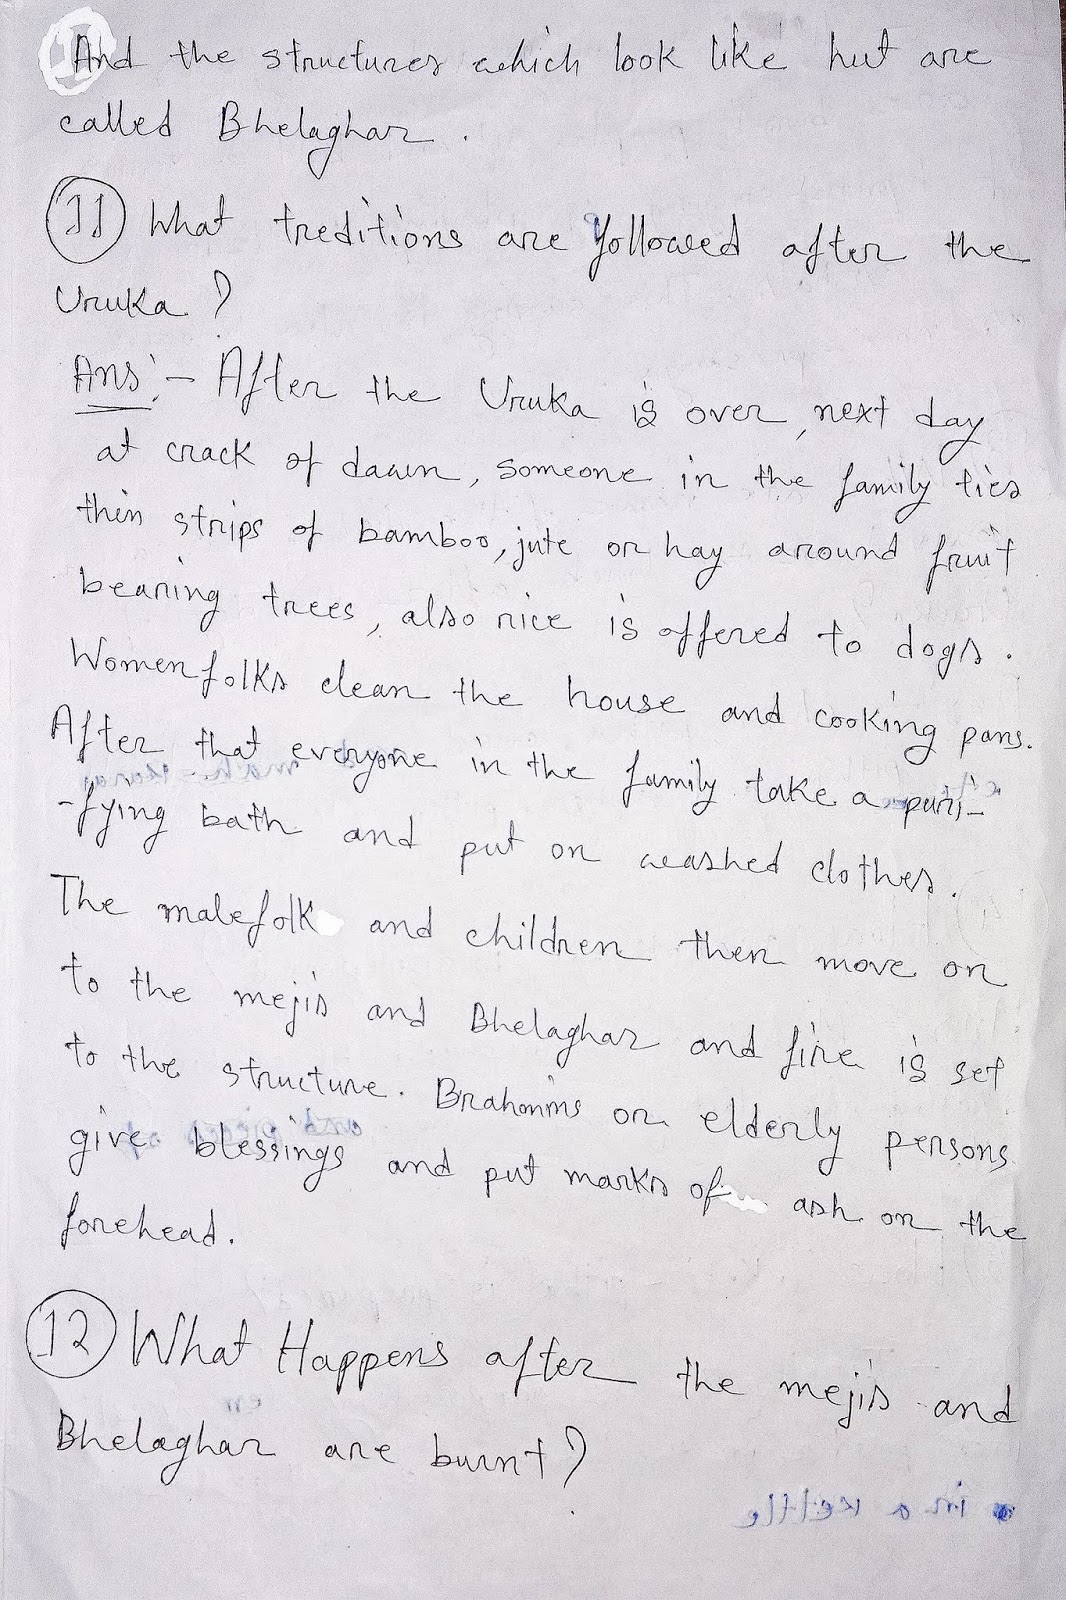 And the structures which look like hut are
called Bhelaghar.
11 What treditions are followed after the
Uruka?
Ans:- After the Uruka is over, next day
at crack of dawn, someone in the family ties
thin strips of bamboo, jute or hay around fruit
bearing trees, also rice is offered to dogs.
Womenfolks clean the house and cooking pans.
After that everyone in the family take a puri-
-fying bath and put on washed clothes.
The malefolk and children then move on
to the mejis and Bhelaghar and fire is set
to the structure. Brahmins or elderly persons
give blessings and put marks of ash on the
forehead.
12 What Happens after the mejis and
Bhelaghar are burnt?
in a kettle